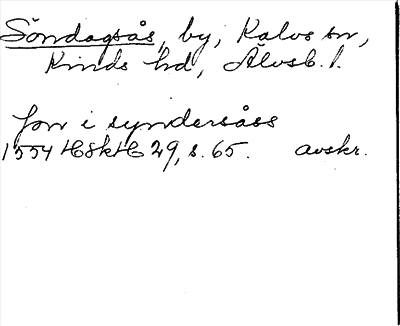 Söndagsås, by, Kalvs sn,
Kinds hd, Älvsb. l.
Jon i syndersåss
1554 HSkH 29, s. 65. avskr.